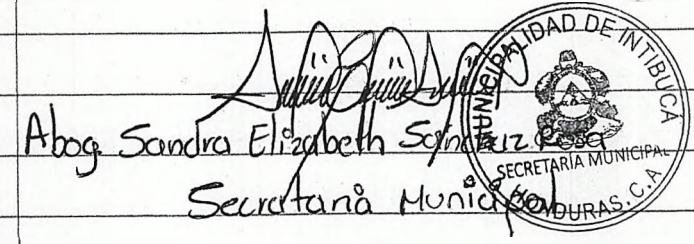 Abog. Sandra Elizabeth Sánchez Rosa
Secretaria Municipal
MUNICIPALIDAD DE INTIBUCÁ
SECRETARÍA MUNICIPAL
HONDURAS, C.A.